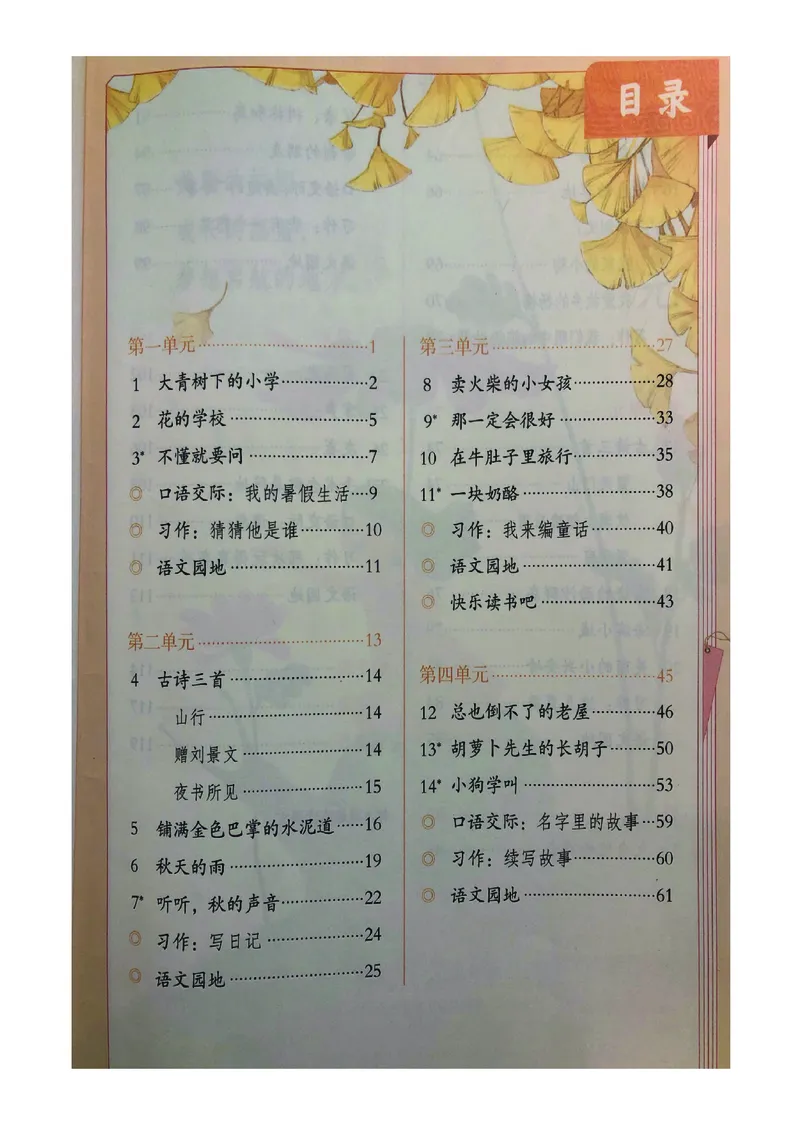 目录
第一单元……………………………1
1 大青树下的小学………………2
2 花的学校………………………5
3* 不懂就要问……………………7
◎ 口语交际：我的暑假生活…9
◎ 习作：猜猜他是谁…………10
◎ 语文园地……………………11
第二单元……………………………13
4 古诗三首………………………14
山行…………………………14
赠刘景文……………………14
夜书所见……………………15
5 铺满金色巴掌的水泥道……16
6 秋天的雨………………………19
7* 听听，秋的声音………………22
◎ 习作：写日记………………24
◎ 语文园地……………………25
第三单元……………………………27
8 卖火柴的小女孩………………28
9* 那一定会很好…………………33
10 在牛肚子里旅行………………35
11* 一块奶酪………………………38
◎ 习作：我来编童话…………40
◎ 语文园地……………………41
◎ 快乐读书吧…………………43
第四单元……………………………45
12 总也倒不了的老屋…………46
13* 胡萝卜先生的长胡子………50
14* 小狗学叫………………………53
◎ 口语交际：名字里的故事…59
◎ 习作：续写故事……………60
◎ 语文园地……………………61